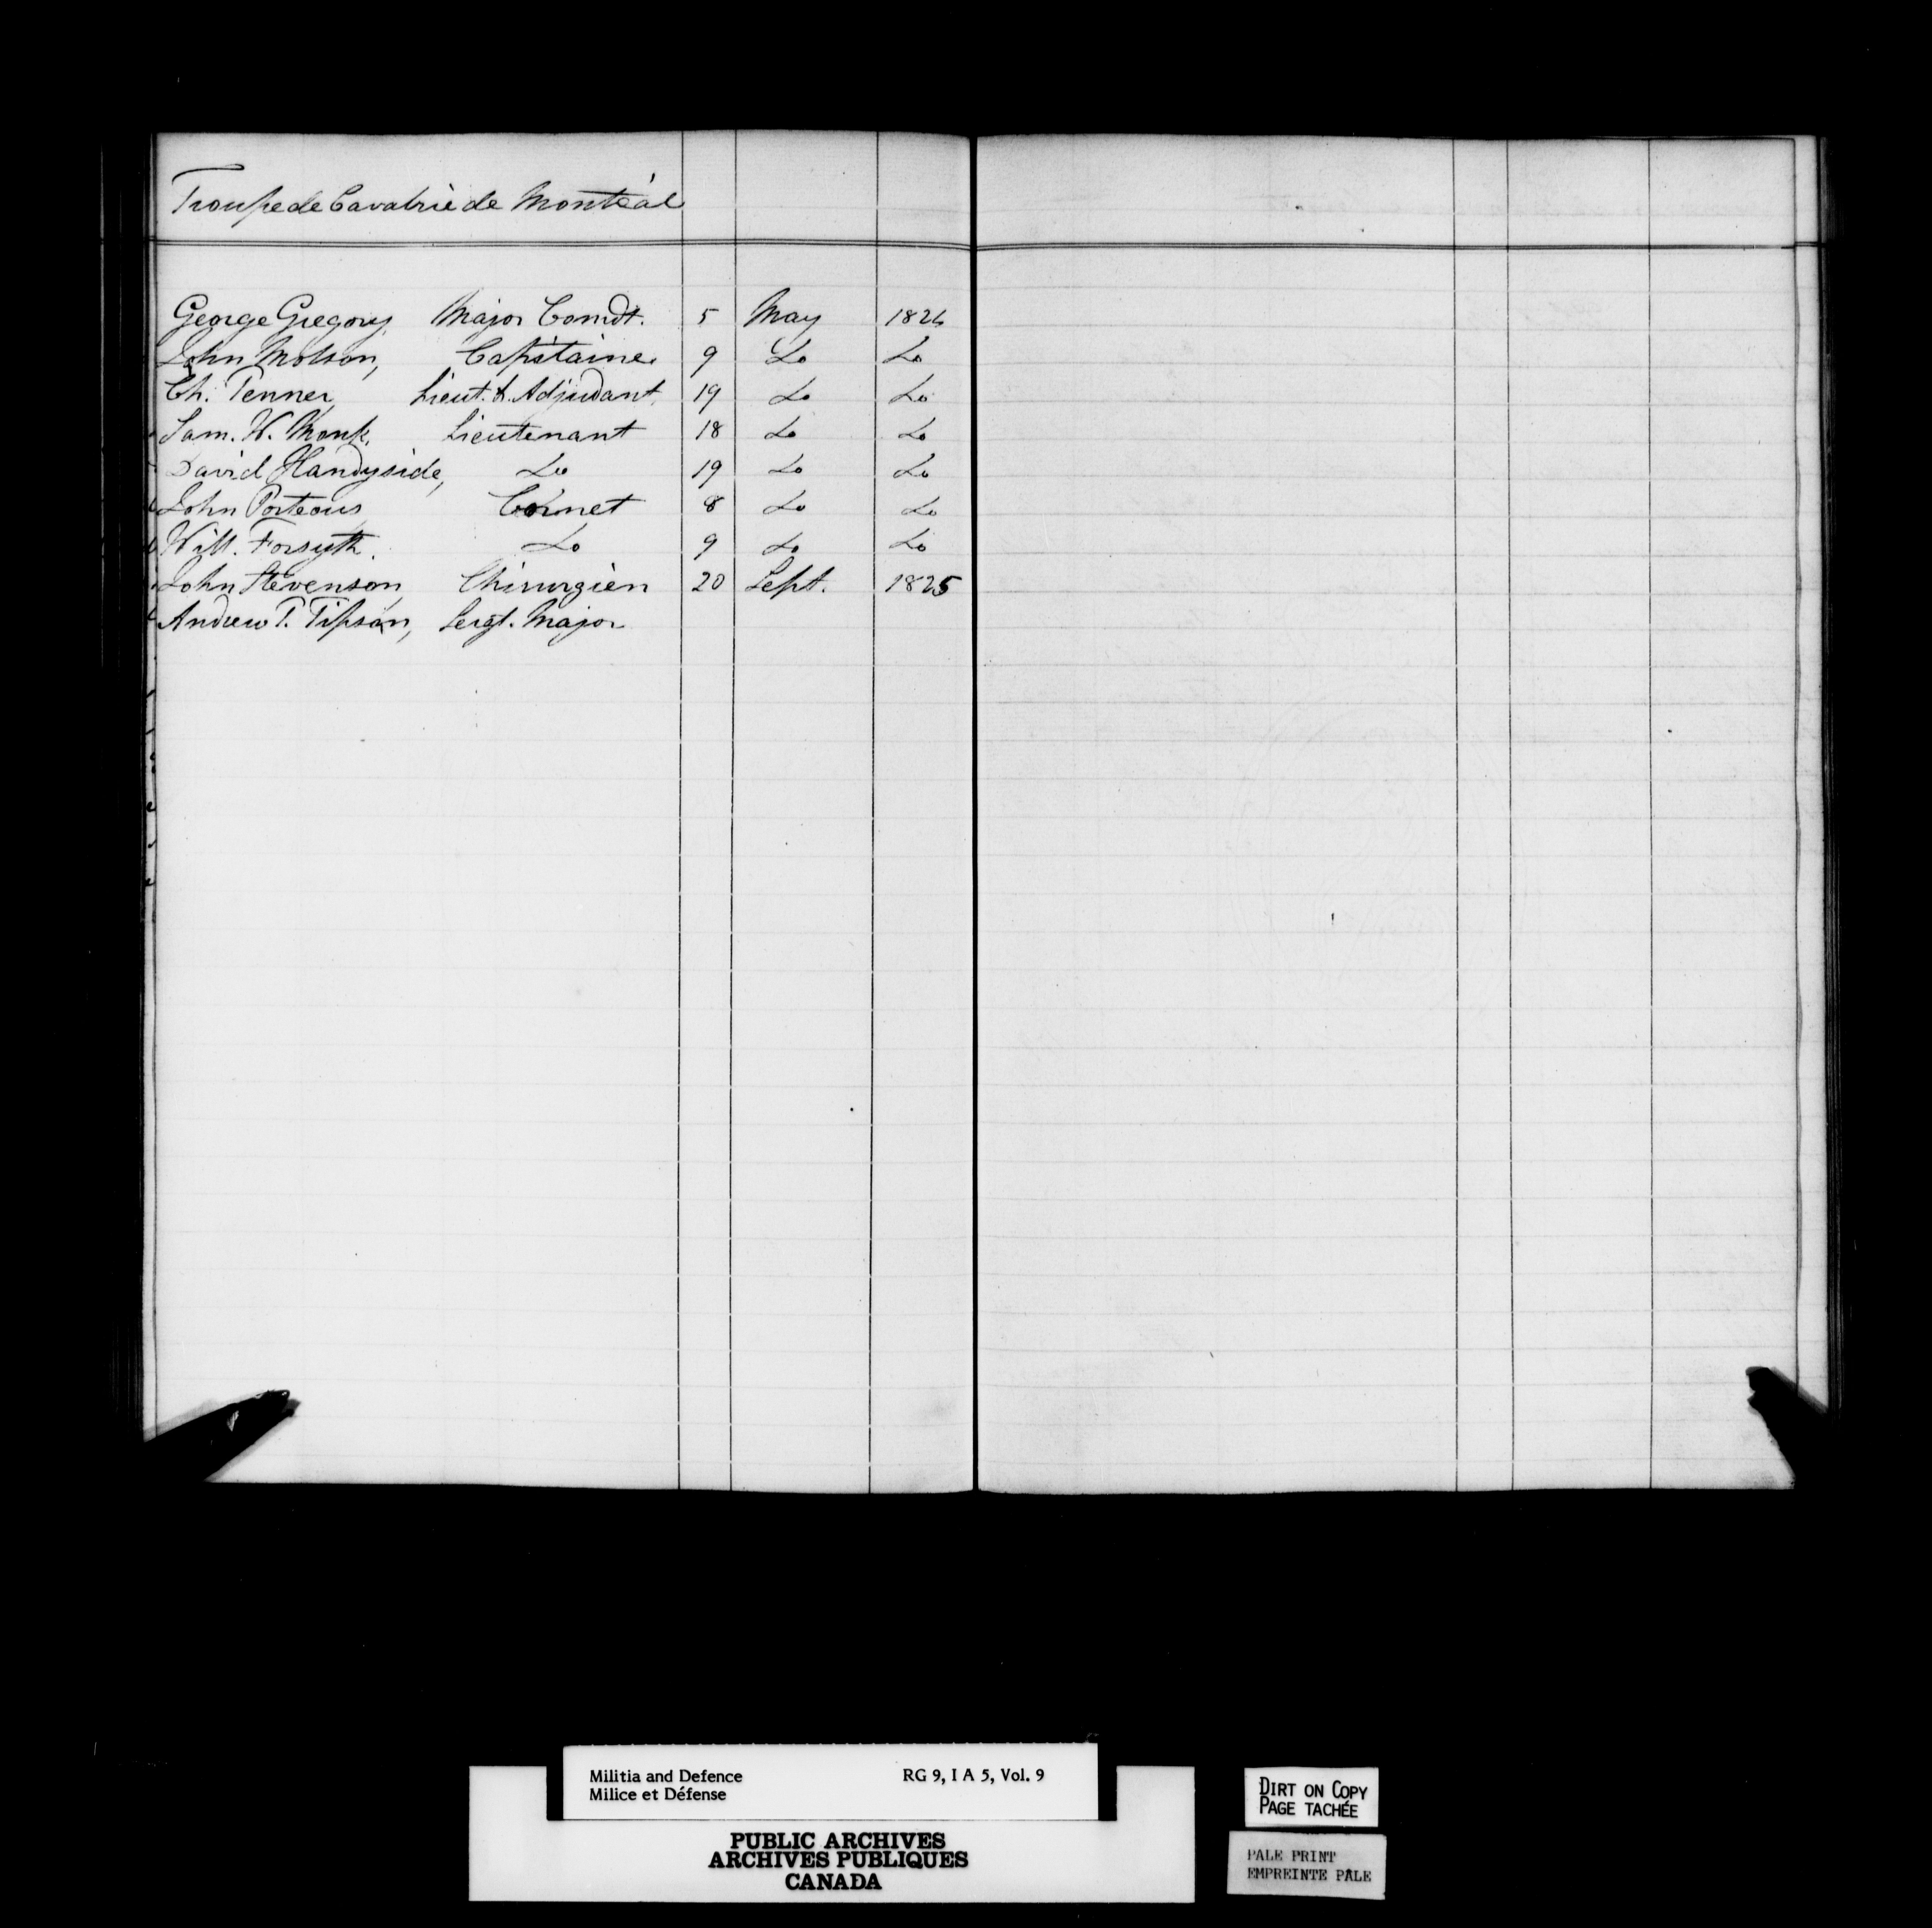 Troupe de Cavalriè de Montéal
George Gregory, Major Comdt. 5 May 1824
John Molson, Capitaine. 9 Do Do
Ch. Penner, Lieut. & Adjudant. 19 Do Do
Sam. W. Monk, Lieutenant 18 Do Do
David Handyside, Do 19 Do Do
John Porteous Cornet 8 Do Do
Will. Forsyth. Do 9 Do Do
John Stevenson, Chirurgien 20 Sept. 1825
Andrew P. Tipson, Sergt. Major
Militia and Defence RG 9, I A 5, Vol. 9
Milice et Défense
PUBLIC ARCHIVES
ARCHIVES PUBLIQUES
CANADA
DIRT ON COPY
PAGE TACHÉE
PALE PRINT
EMPREINTE PÂLE